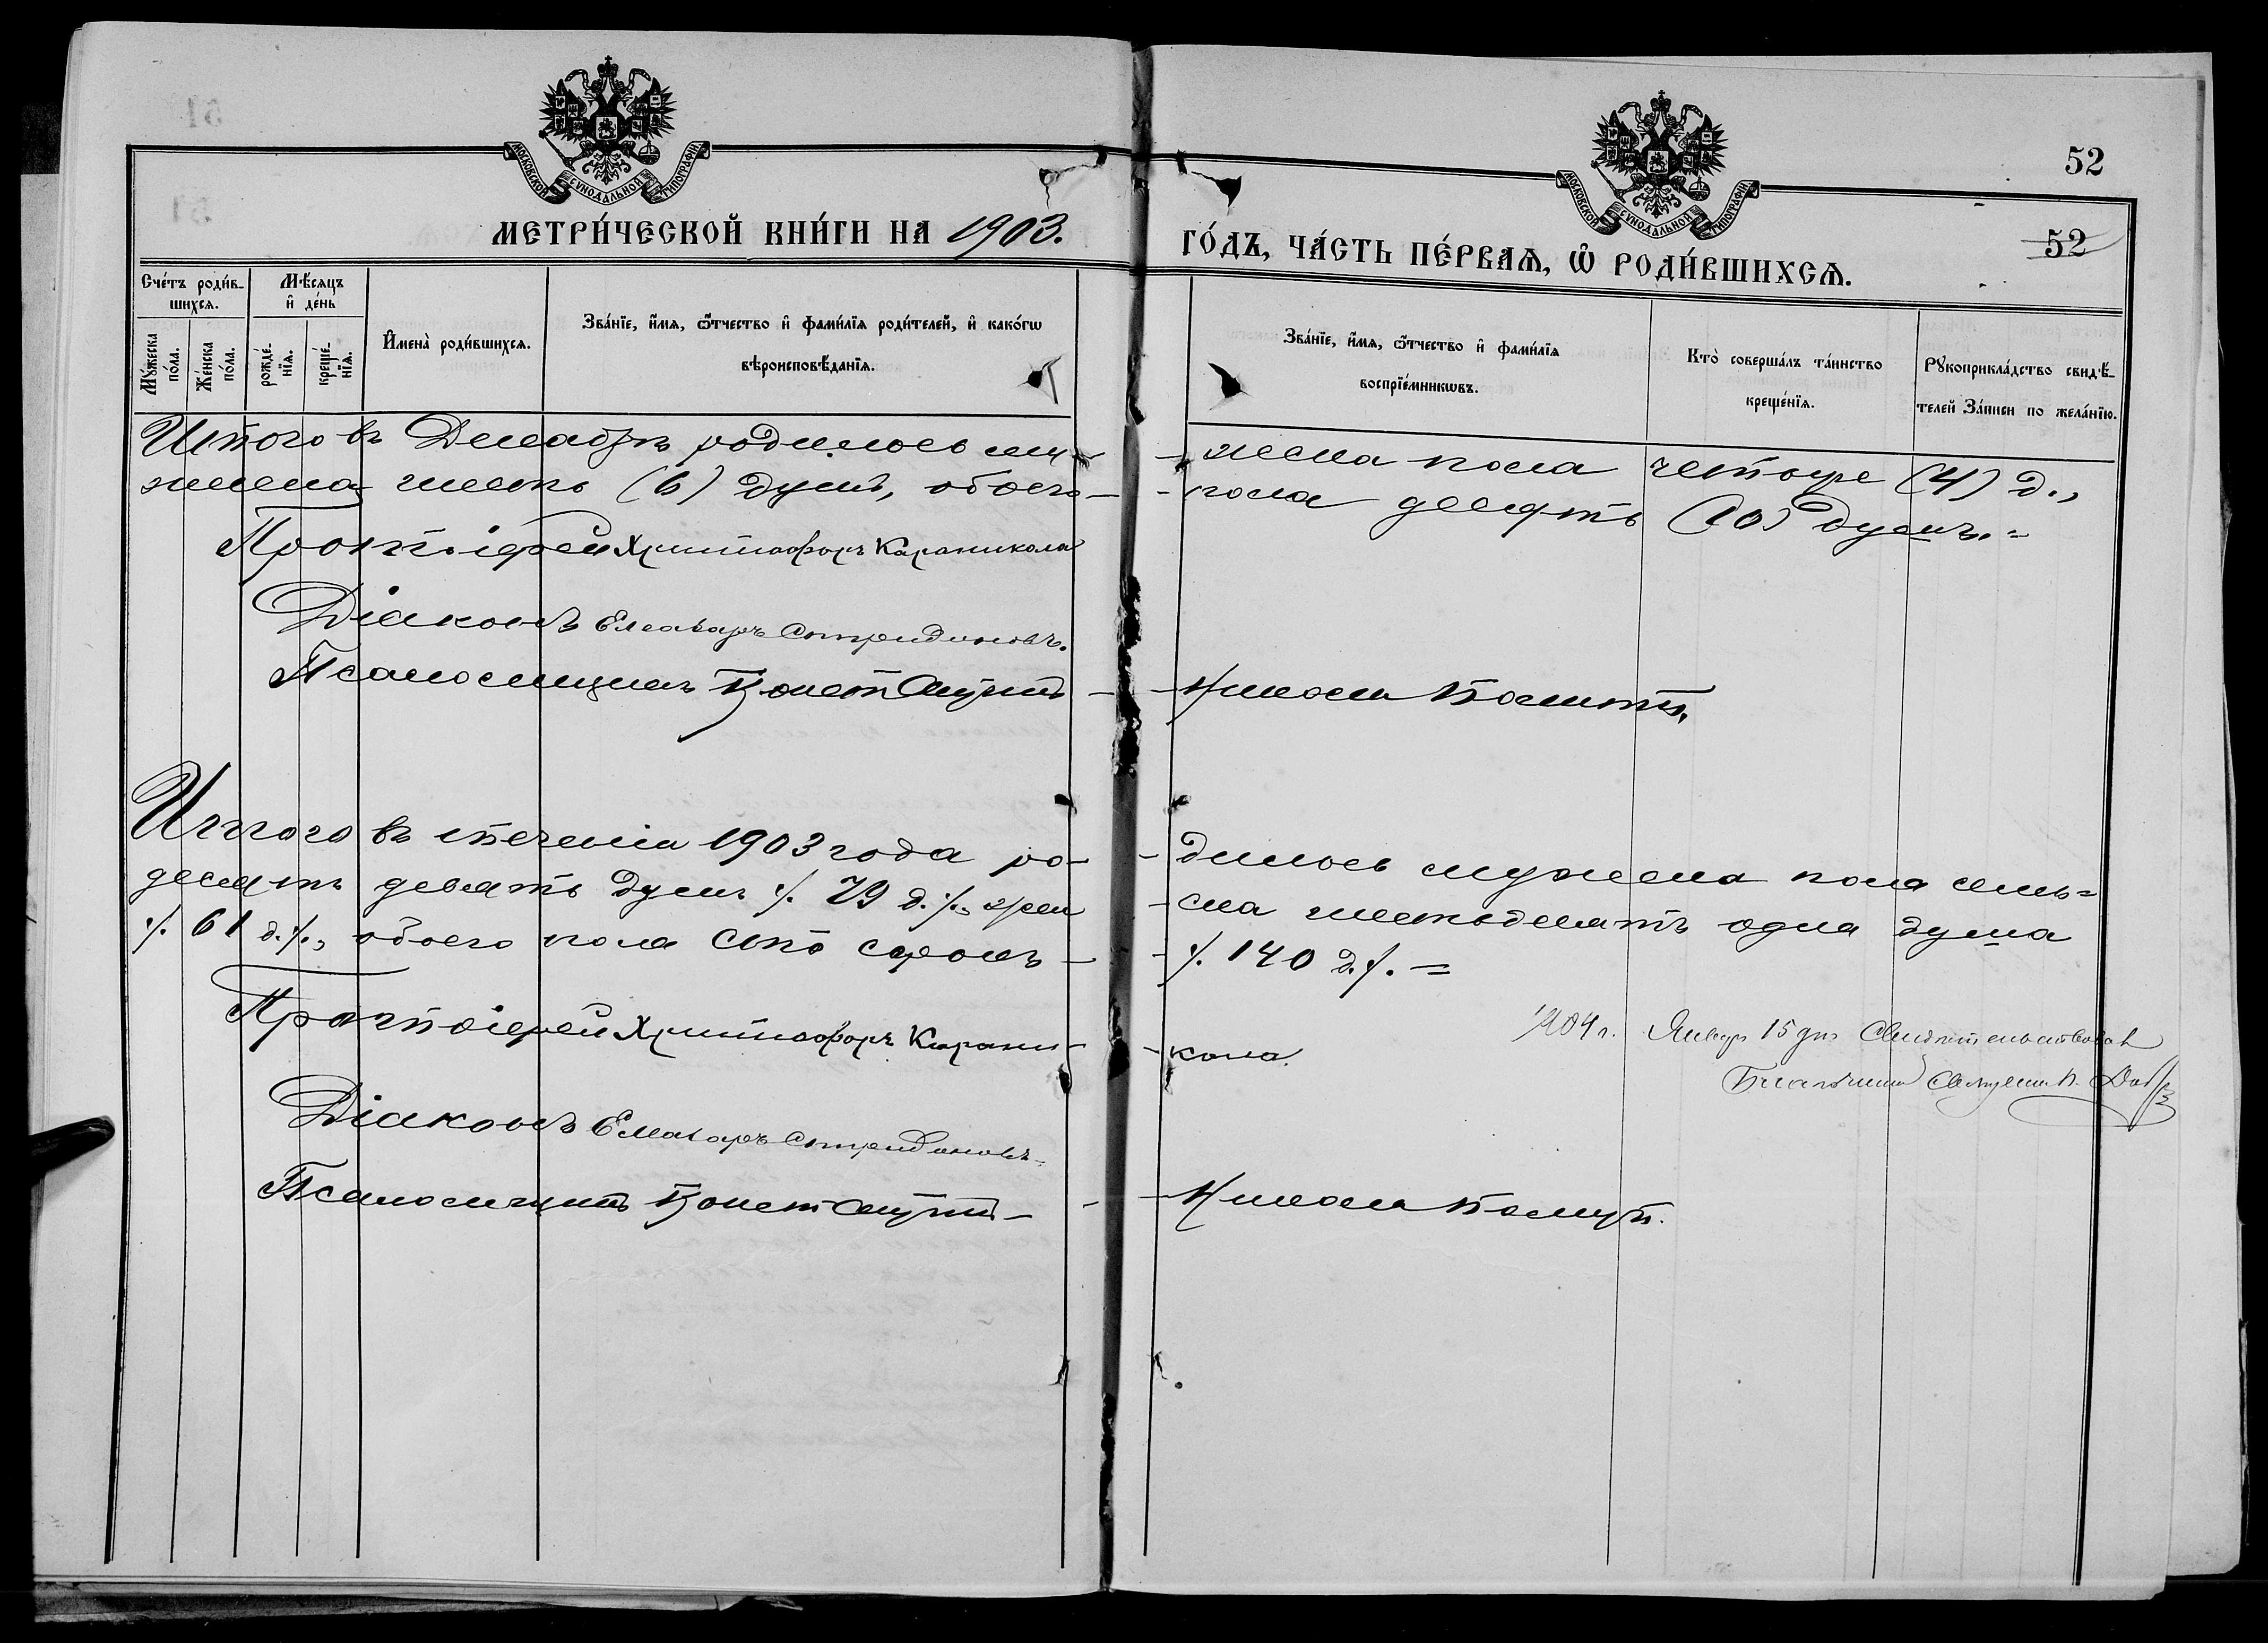 52
52
МОСКОВСКОЙ СѴНОДАЛЬНОЙ ТИПОГРАФІИ
МОСКОВСКОЙ СѴНОДАЛЬНОЙ ТИПОГРАФІИ
МЕТРИ́ЧЕСКОЙ КНИ́ГИ НА 1903. ГО́ДЪ, ЧА́СТЬ ПЕ́РВАѦ, Ѡ РОДИ́ВШИХСѦ.
Сче́тъ роди́в-
шихсѧ.
Мꙋ́жеска по́ла.
Же́нска по́ла.
Мѣ́сѧцъ
и҆ де́нь
рожде́-
нїѧ.
креще́-
нїѧ.
И҆мена̀ роди́вшихсѧ.
Зва́нїе, и҆́мѧ, ѻ҆́тчество и҆ фамѝлїѧ роди́телей, и҆ како́гѡ
вѣроисповѣ́данїѧ.
Зва́нїе, и҆́мѧ, ѻ҆́тчество и҆ фами́лїѧ
воспрїе́мникѡвъ.
Кто̀ соверша́лъ та́инство
креще́нїѧ.
Рꙋкоприкла́дство свидѣ́-
телей За́писи по жела́нїю.
Итого въ Декабрѣ родилось му- -жеска пола четыре (4) д.,
женска шесть (6) душъ, обоего- -пола десять (10) душъ.=
Протоіерей Христофоръ Караникола
Діаконъ Елеазаръ Спиридоновъ.
Псаломщикъ Конст
Итого въ теченіи 1903 года ро- -дилось мужеска пола семь=
десятъ девять душъ ./. 79 д./., жен -ска шестьдесятъ одна душа
./. 61 д./., обоего пола сто сорокъ- -./. 140 д./. =
Протоіерей Христофоръ Карани- -кола.
1904 г. Январь 15 дня Свидѣтельствовал
Благочинный Священ.
Діаконъ Елеазаръ Спиридоновъ
Псаломщикъ Конст